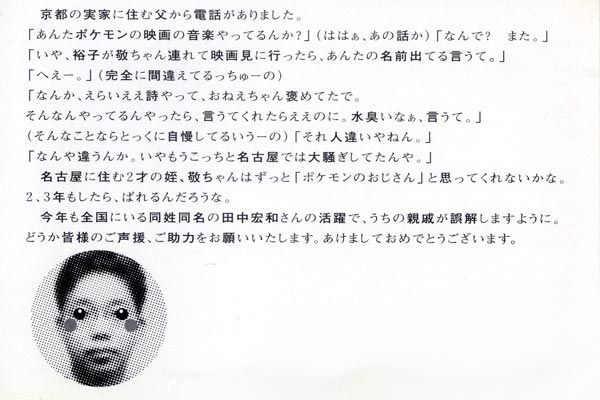 京都の実家に住む父から電話がありました。
「あんたポケモンの映画の音楽やってるんか?」(ははぁ、あの話か)「なんで? また。」
「いや、裕子が敬ちゃん連れて映画見に行ったら、あんたの名前出てる言うて。」
「へえー。」(完全に間違えてるっちゅーの)
「なんか、えらいええ詩やって、おねえちゃん褒めてたで。
そんなんやってるんやったら、言うてくれたらええのに。水臭いなぁ、言うて。」
(そんなことならとっくに自慢してるいうーの)「それ人違いやねん。」
「なんや違うんか。いやもうこっちと名古屋では大騒ぎしてたんや。」
名古屋に住む2才の姪、敬ちゃんはずっと「ポケモンのおじさん」と思ってくれないかな。
2、3年もしたら、ばれるんだろうな。
今年も全国にいる同姓同名の田中宏和さんの活躍で、うちの親戚が誤解しますように。
どうか皆様のご声援、ご助力をお願いいたします。あけましておめでとうございます。